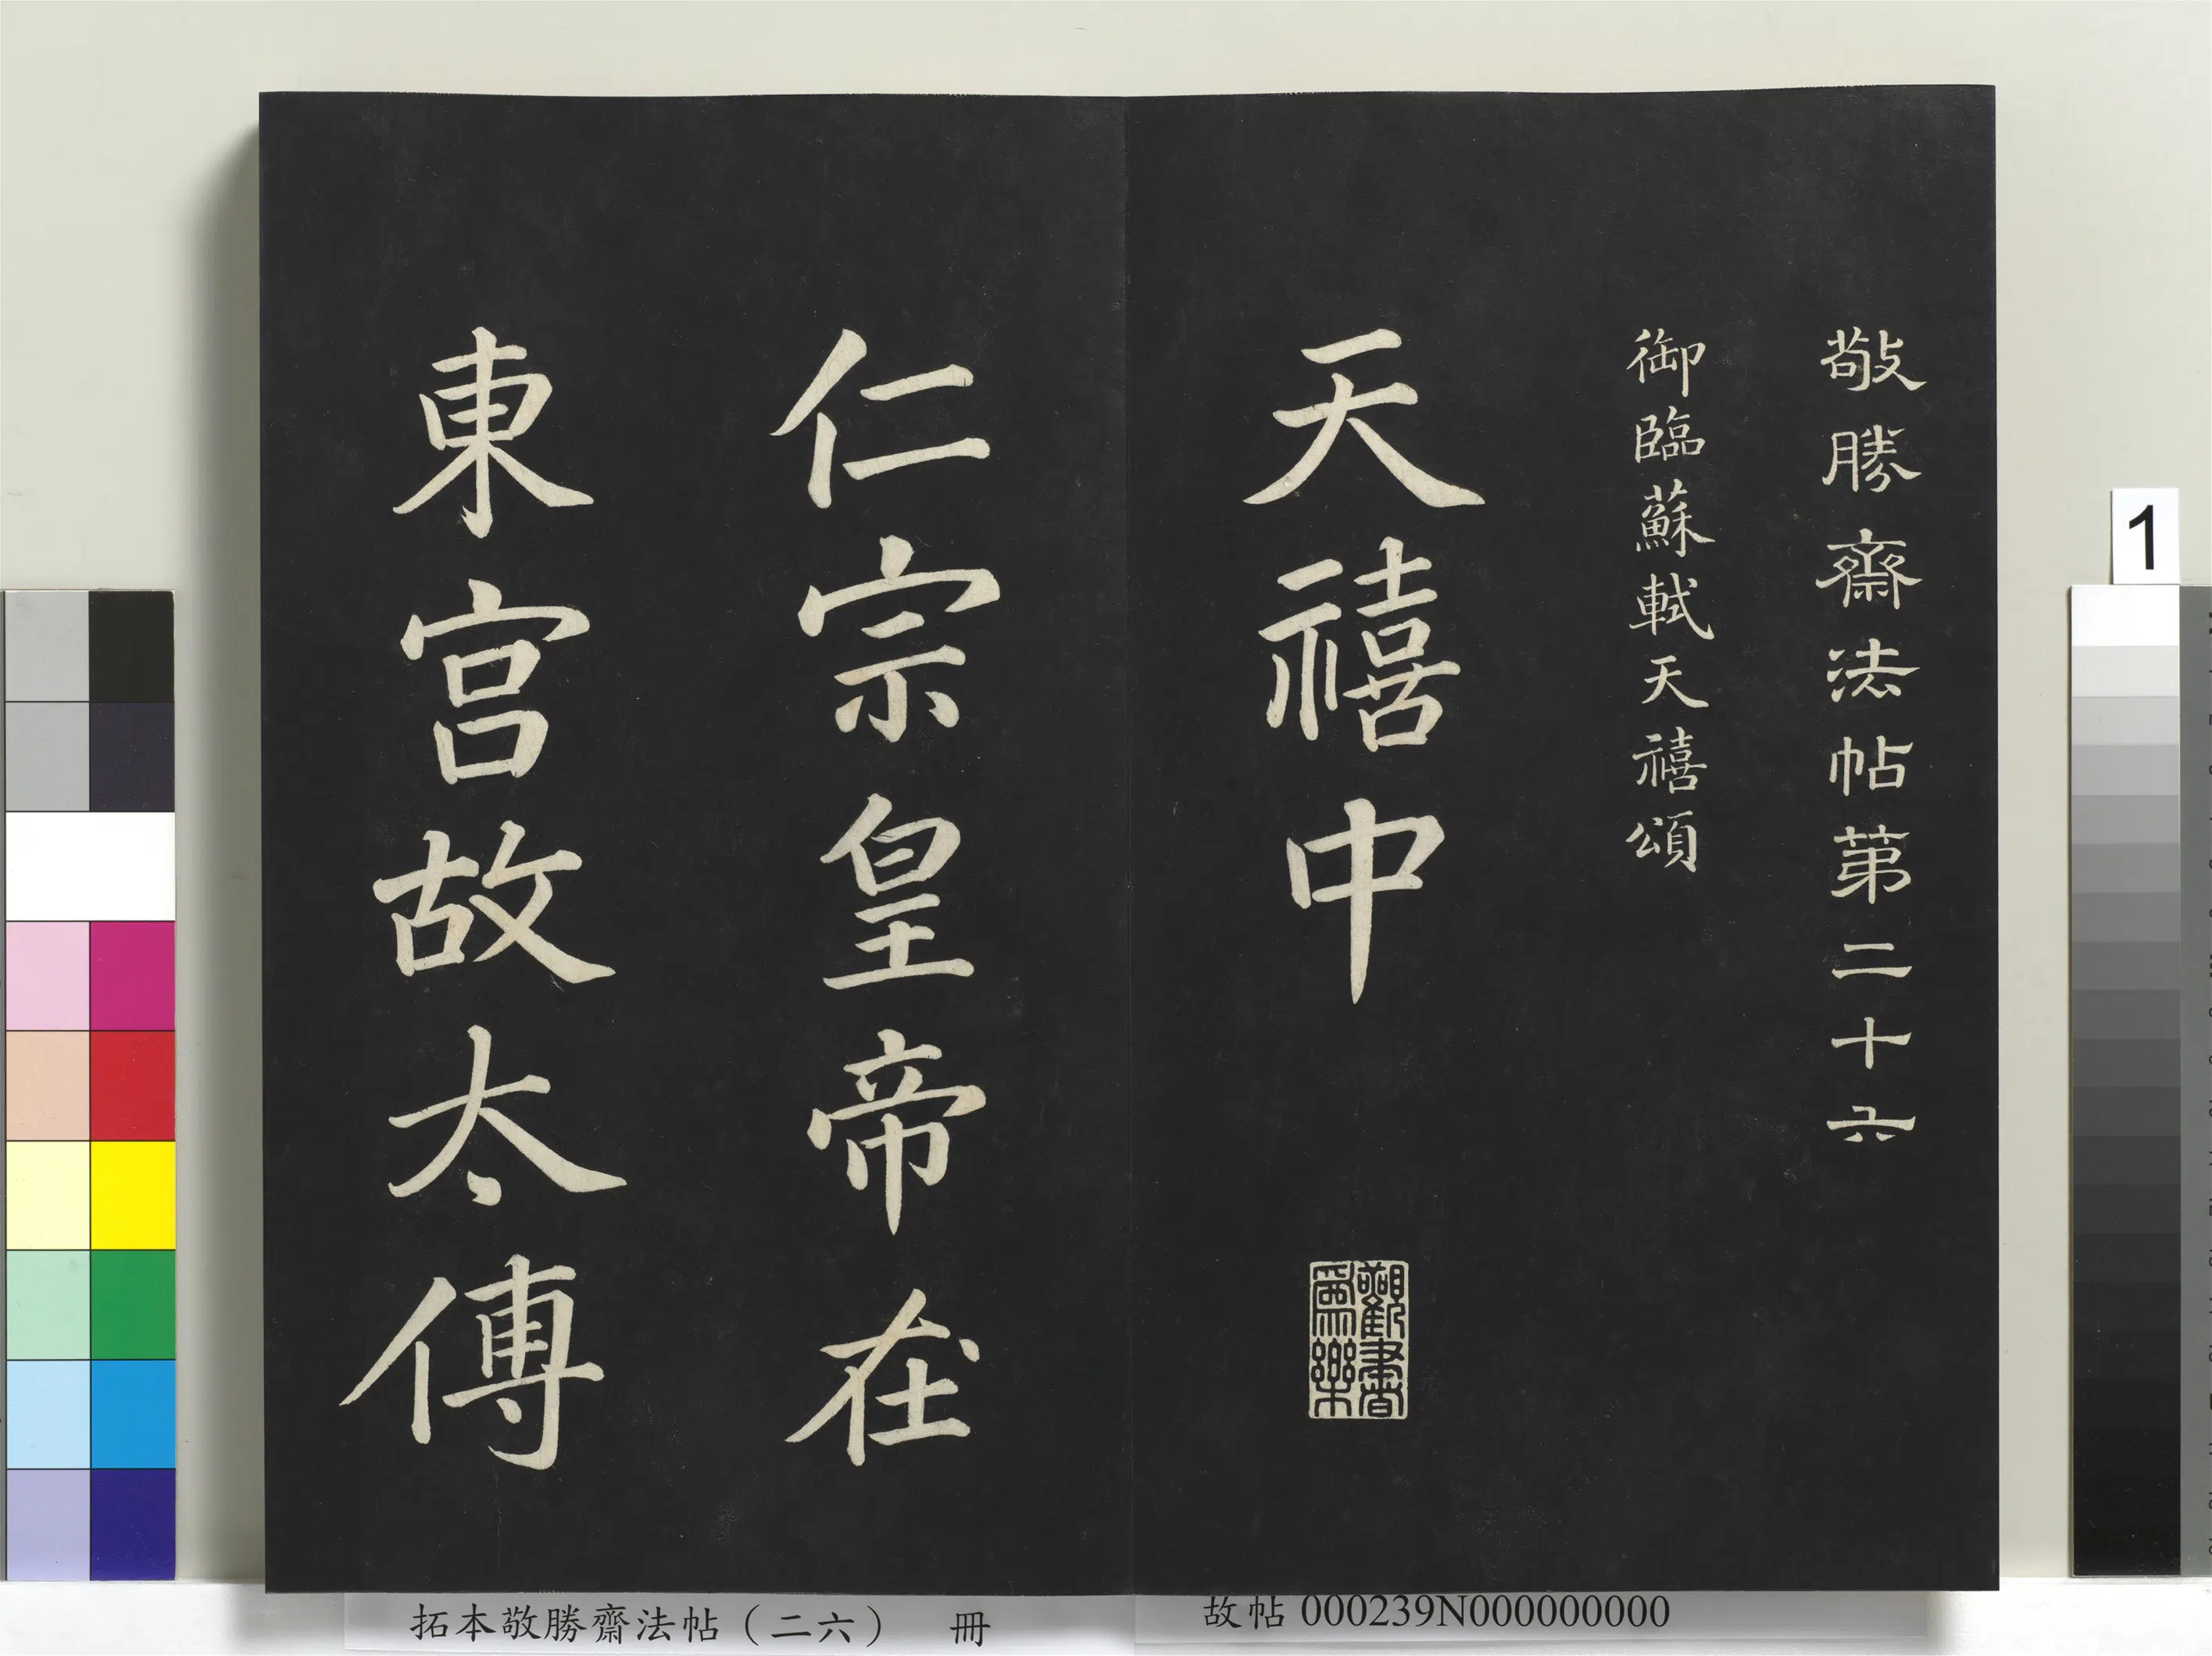 敬勝齋法帖第二十六
御臨蘇軾天禧頌
天禧中
觀書為樂
仁宗皇帝在
東宮故太傅
1
拓本敬勝齋法帖（二六） 冊
故帖 000239N000000000